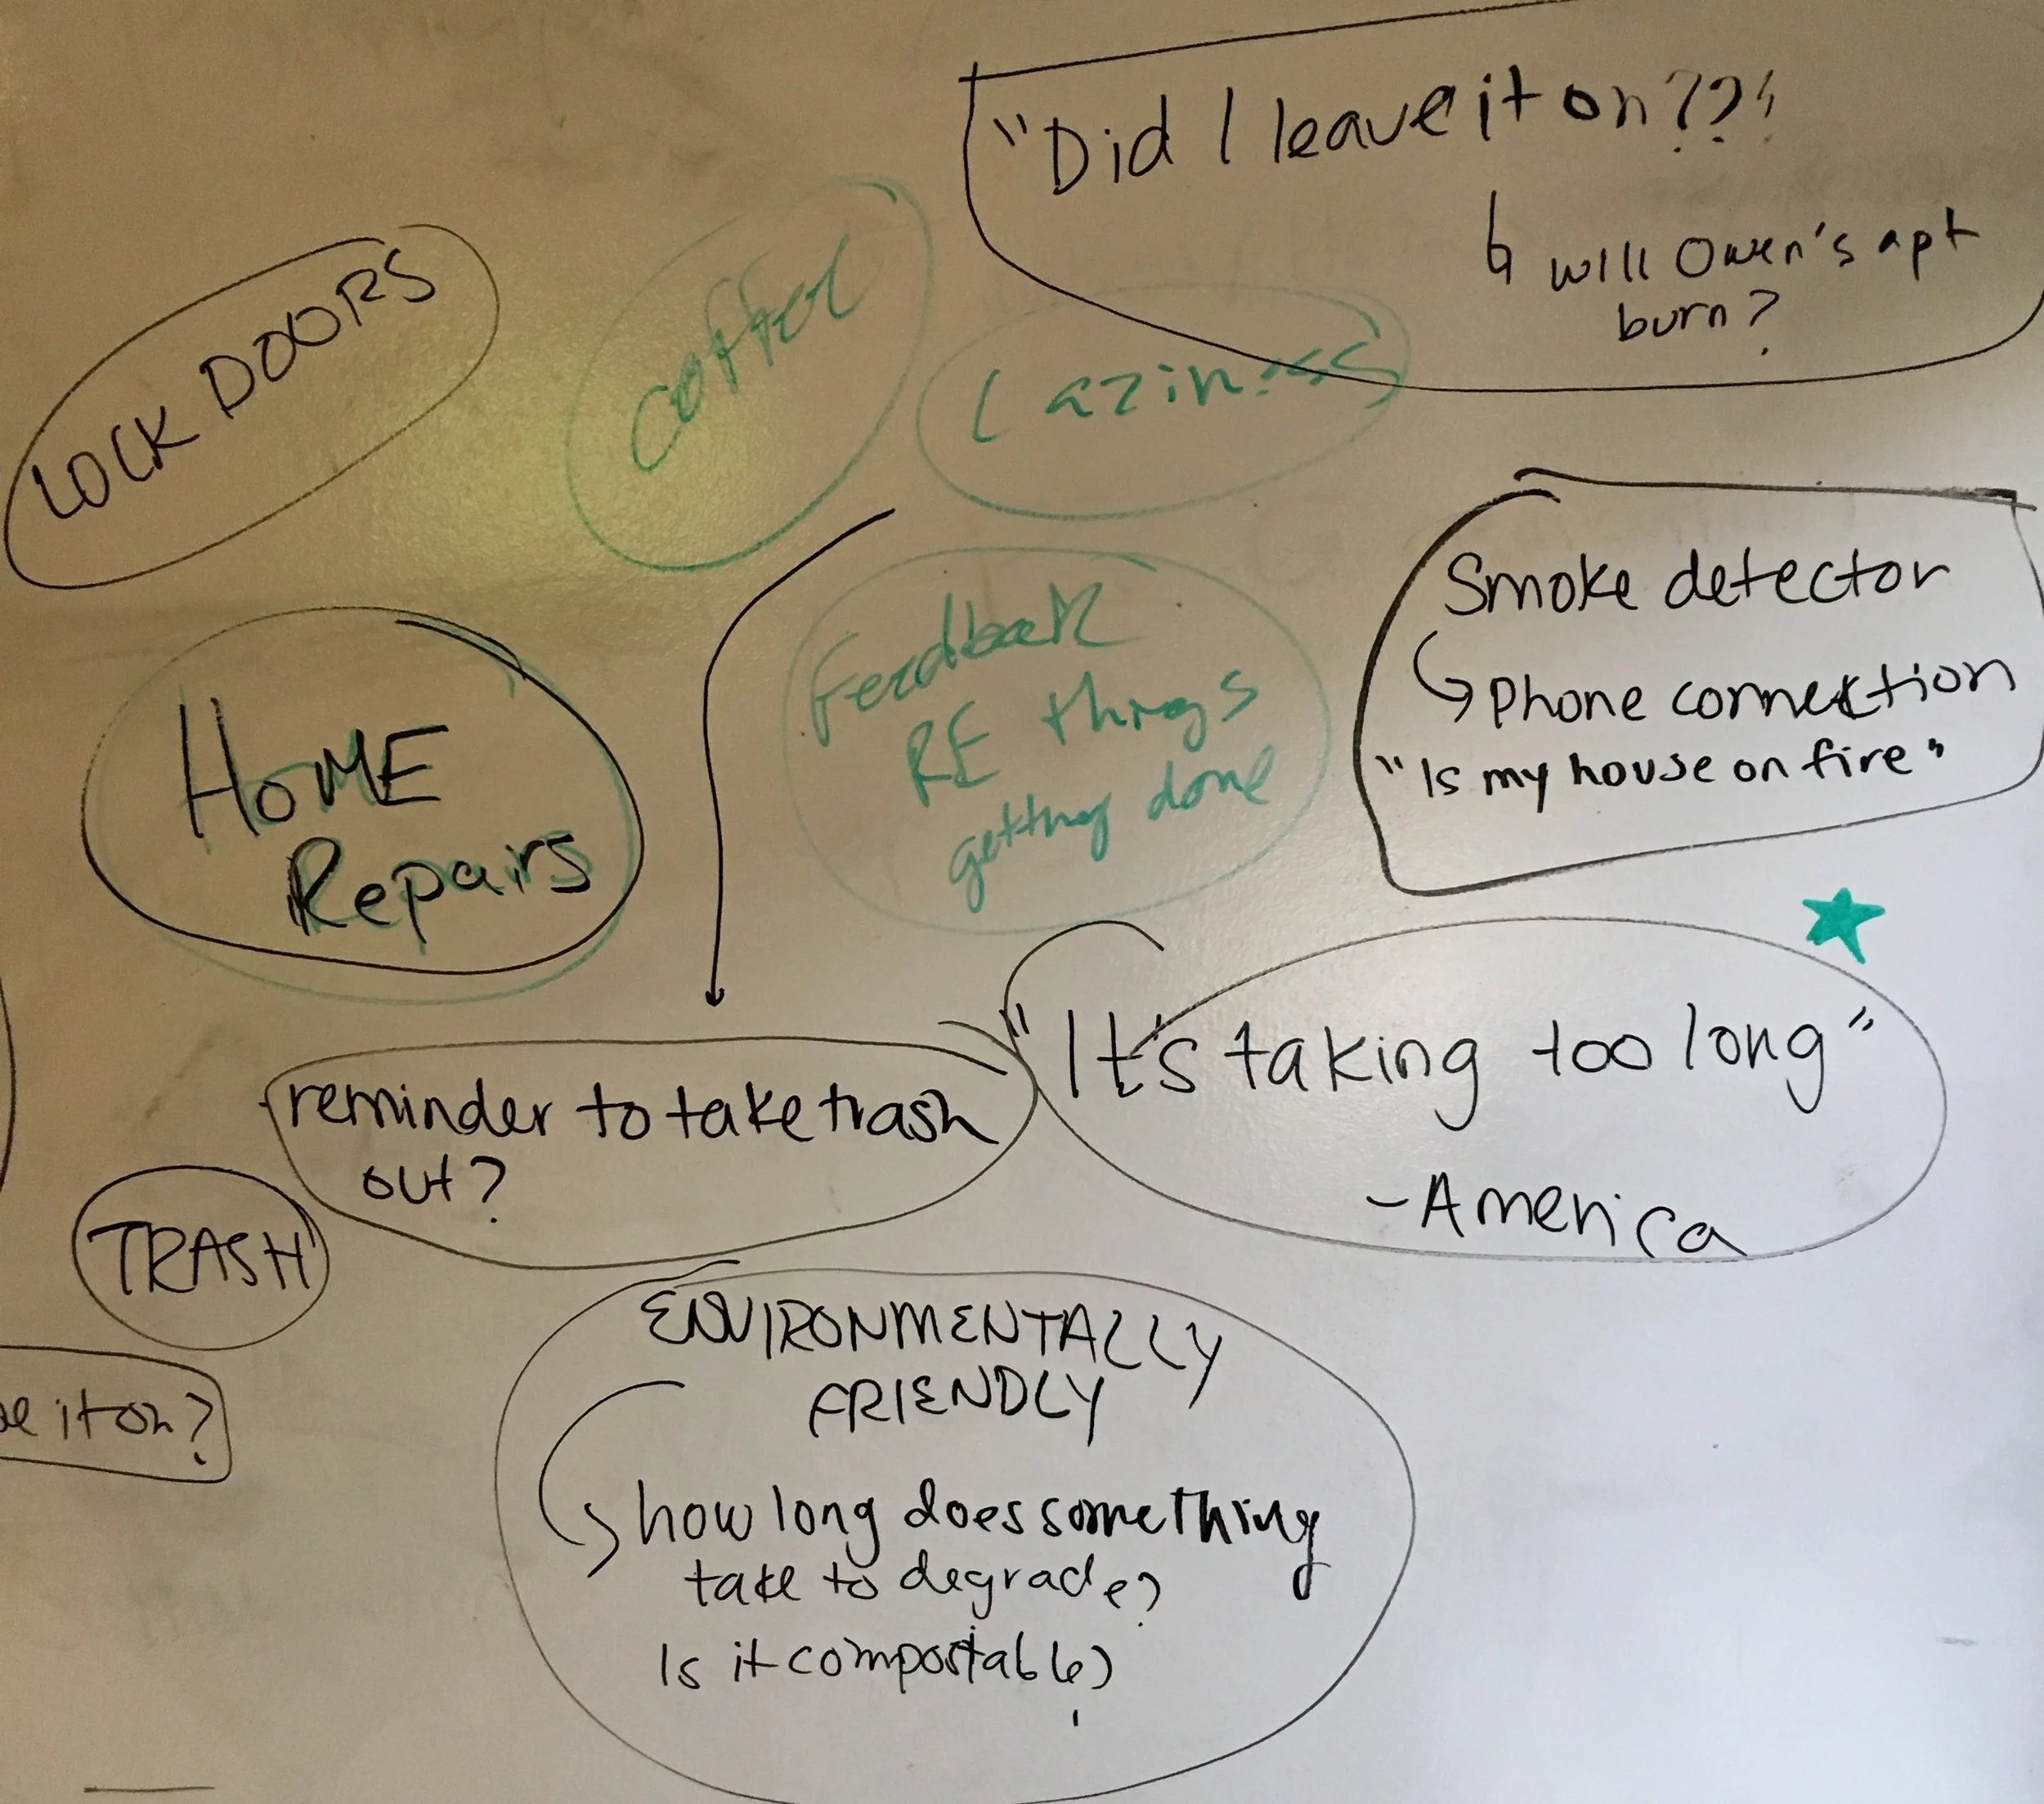 "Did I leave it on??"
will Owen's apt
burn?
LOCK DOORS
Coffee
Laziness
Smoke detector
Phone connection
"Is my house on fire"
Feedback
RE things
getting done
HOME
Repairs
"It's taking too long"
-America
reminder to take trash
out?
TRASH
ENVIRONMENTALLY
FRIENDLY
it on?
how long does something
take to degrade?
Is it compostable?